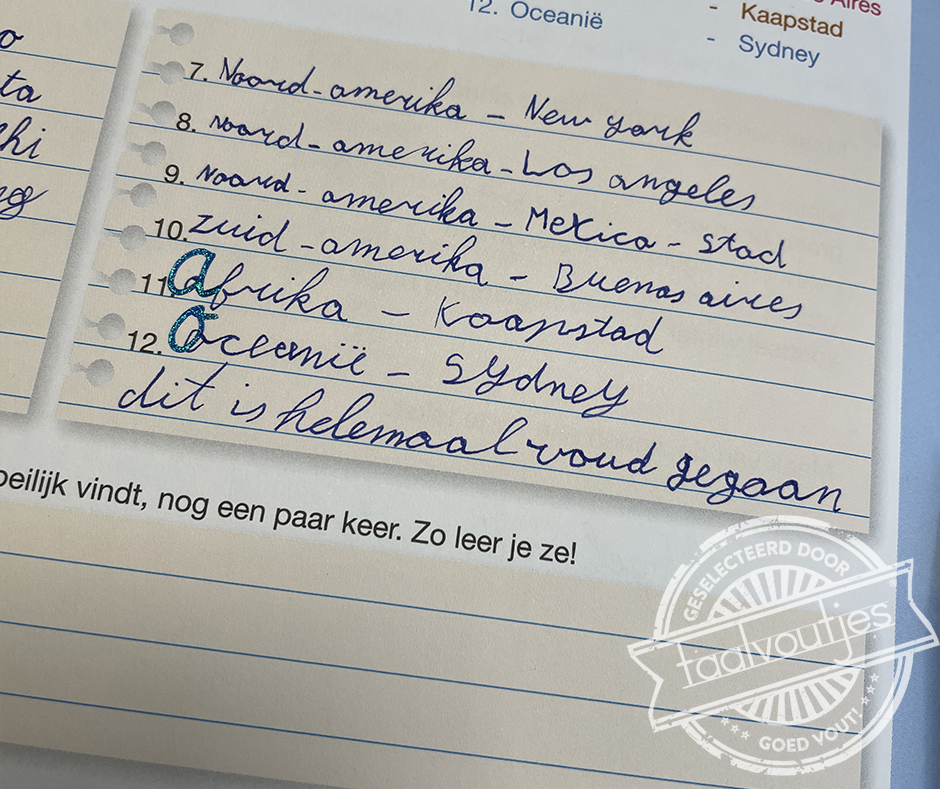 Aires
12. Oceanië
- Kaapstad
- Sydney
o
ta
hi
g
7. Noord-amerika - New york
8. Noord-amerika - Los angeles
9. Noord-amerika - Mexico-stad
10. Zuid-amerika - Buenos aires
11. Afrika - Kaapstad
12. Oceanië - Sydney
dit is helemaal voud gegaan
oeilijk vindt, nog een paar keer. Zo leer je ze!
GESELECTEERD DOOR
taalvoutjes
GOED VOUT!